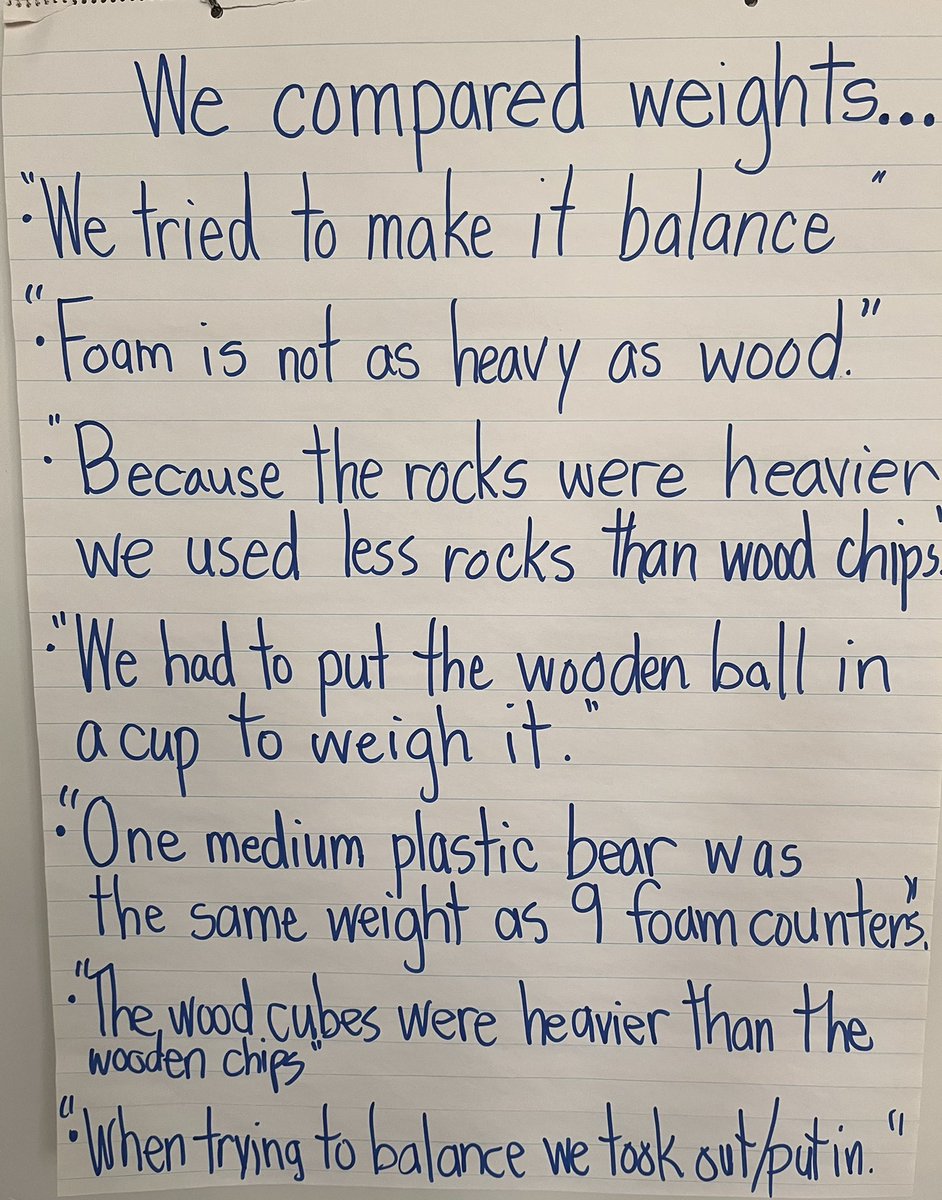 We compared weights...
• "We tried to make it balance"
• "Foam is not as heavy as wood."
• "Because the rocks were heavier
we used less rocks than wood chips."
• "We had to put the wooden ball in
a cup to weigh it."
• "One medium plastic bear was
the same weight as 9 foam counters."
• "The wood cubes were heavier than the
wooden chips"
• "When trying to balance we took out/put in."